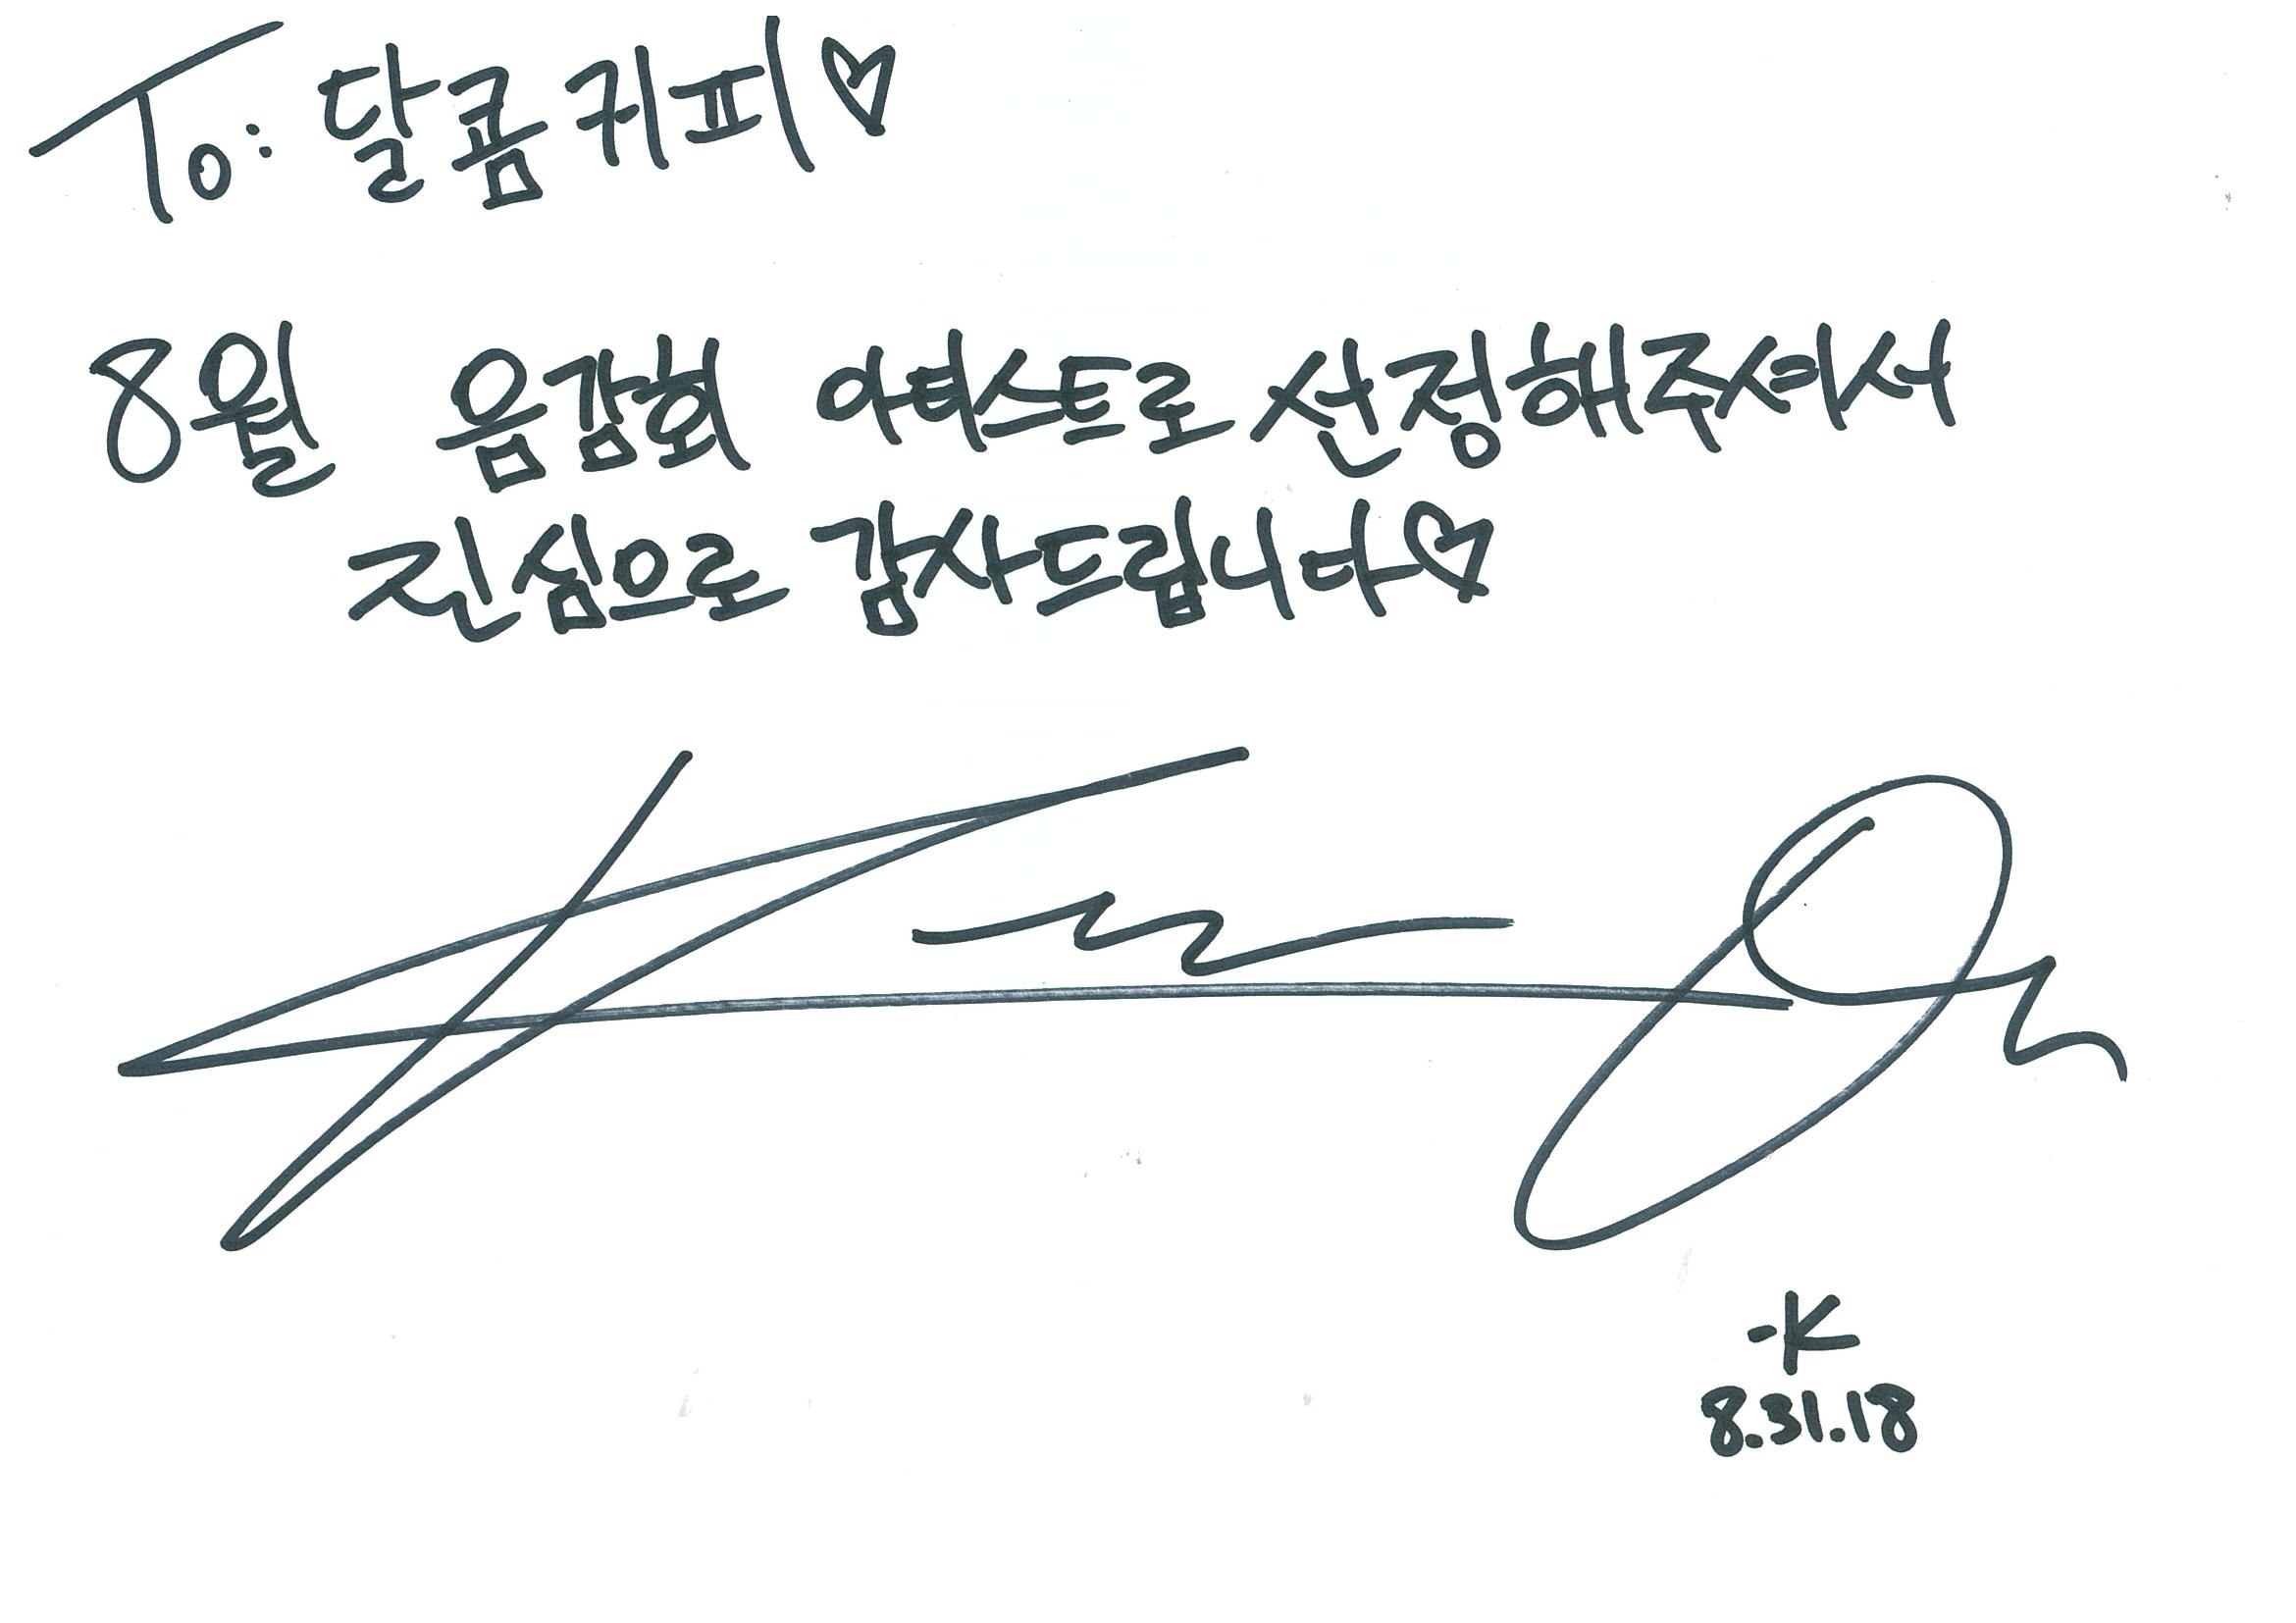 To: 달콤커피♡
8월 음감회 아티스트로 선정해주셔서
진심으로 감사드립니다♡
-K
8.31.18